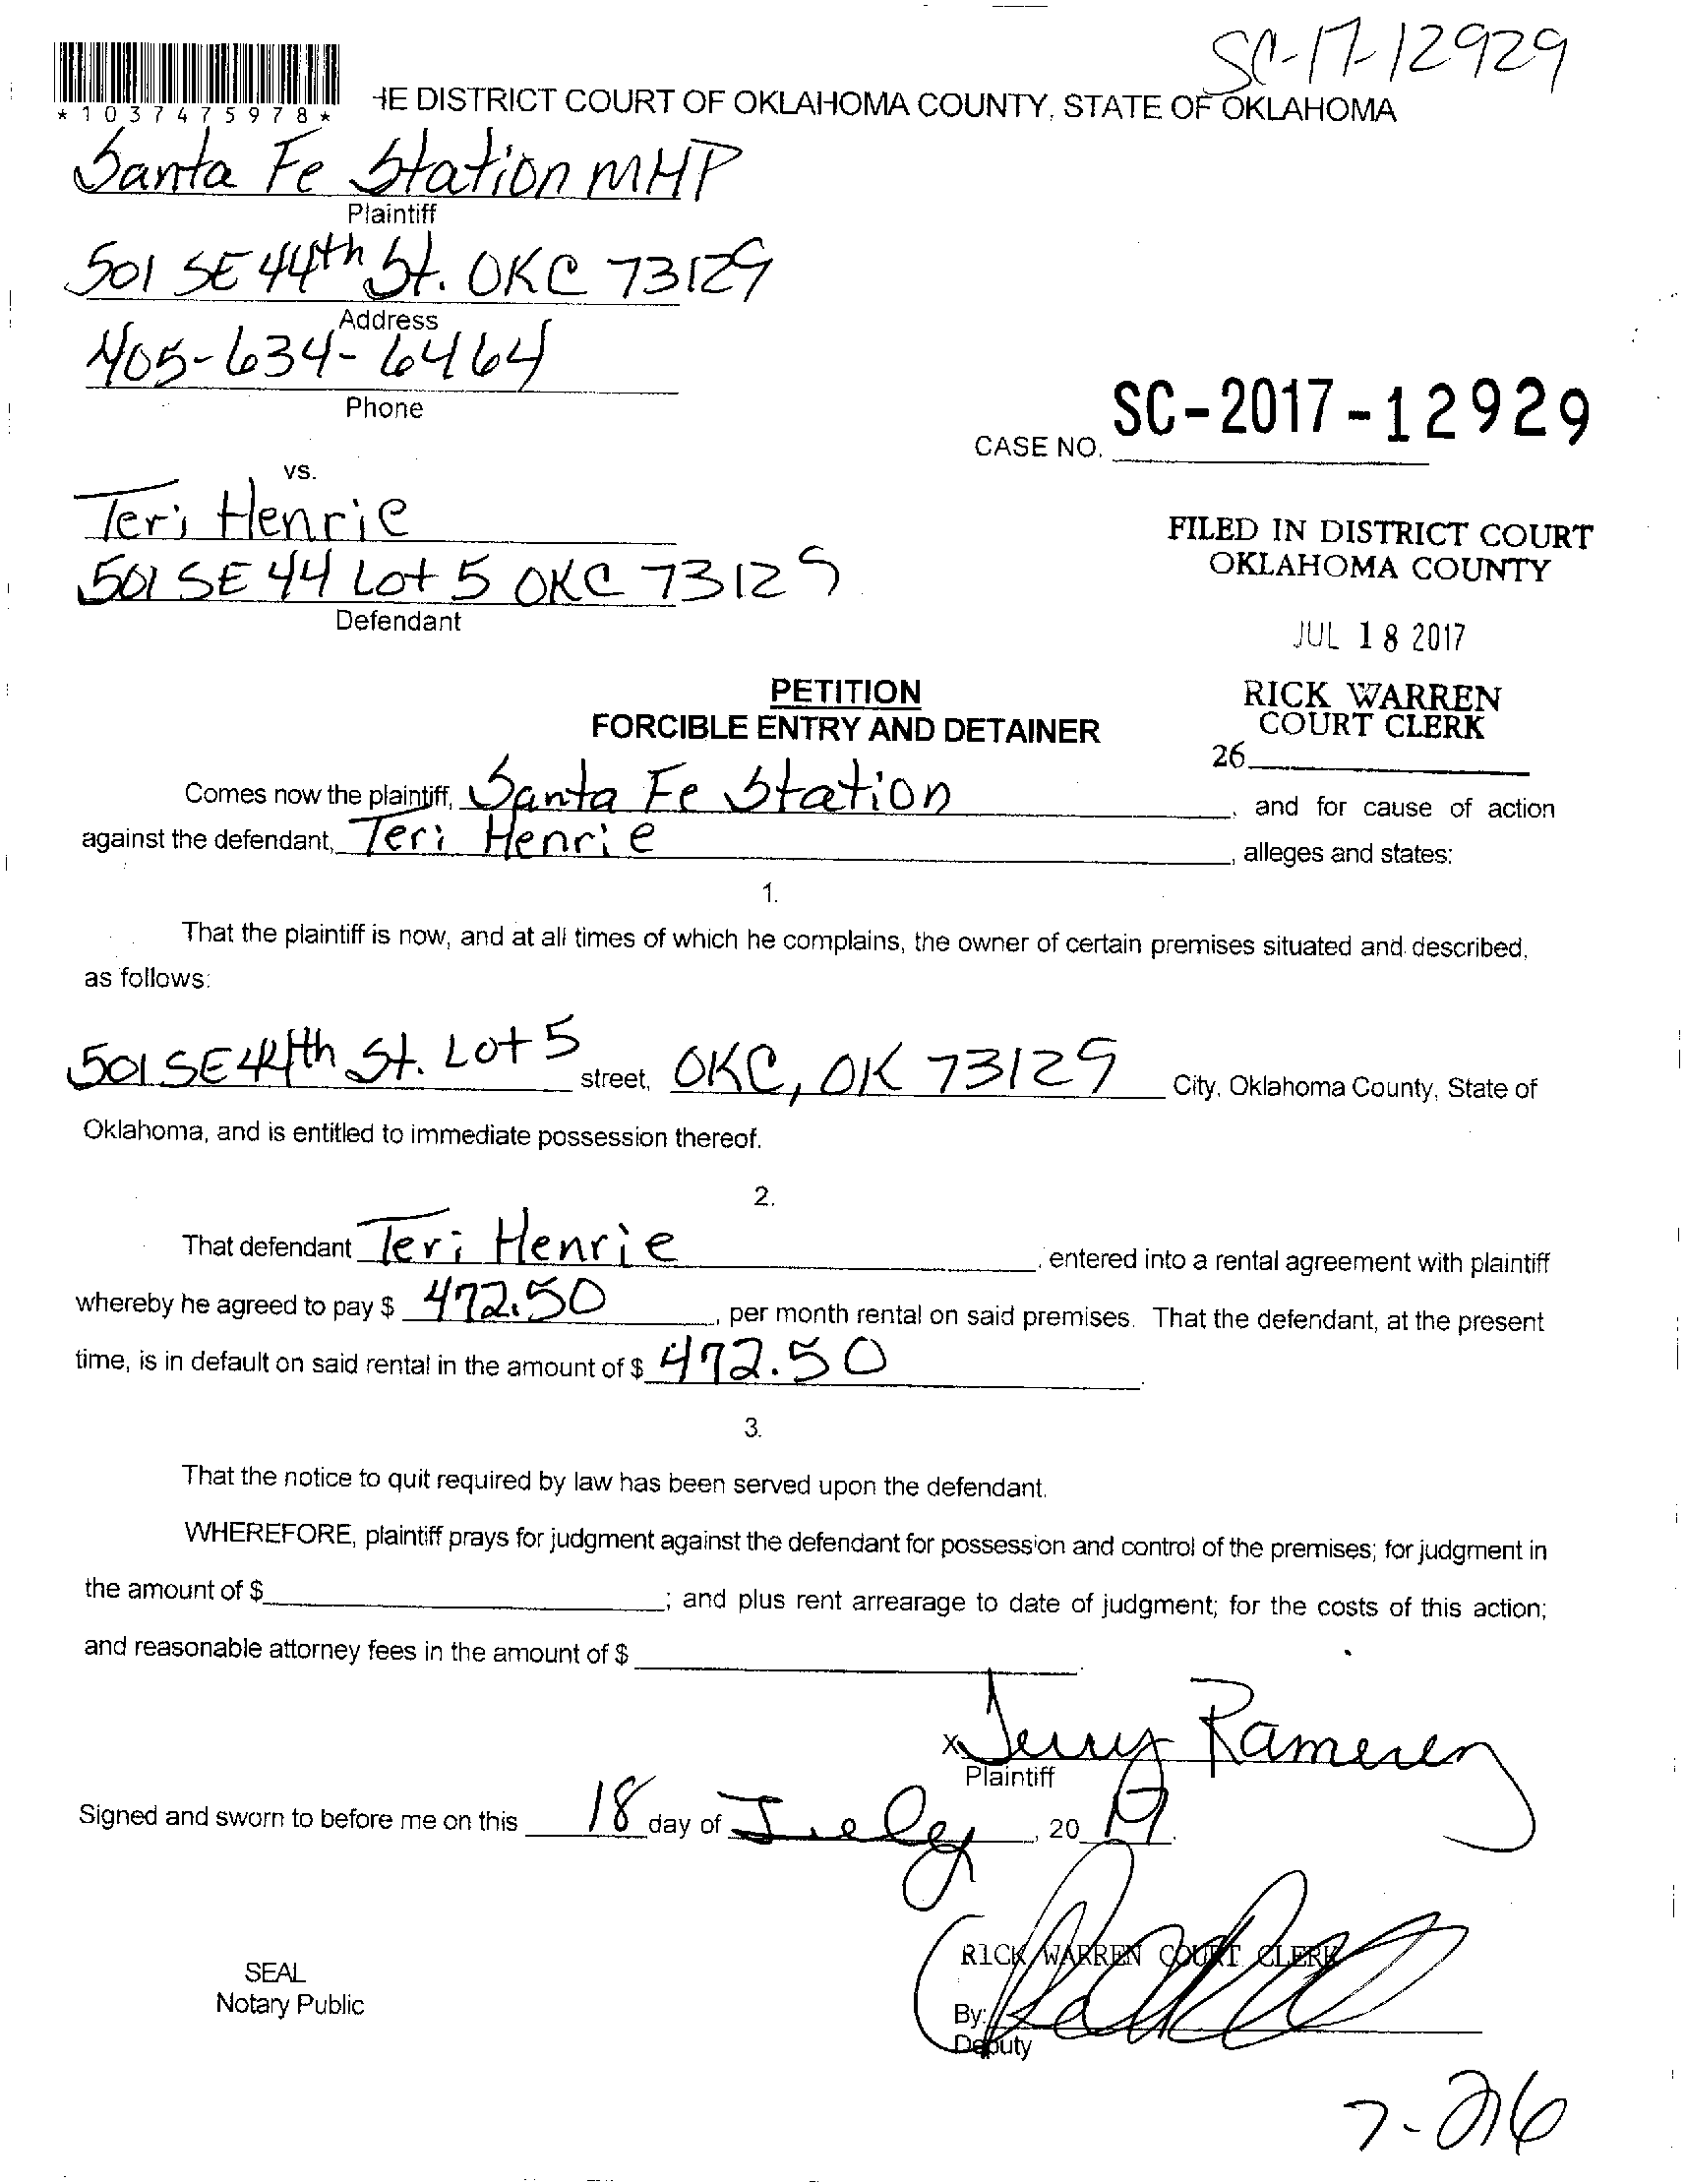 SC-17-12929
*1037475978*
HE DISTRICT COURT OF OKLAHOMA COUNTY, STATE OF OKLAHOMA
Santa Fe Station MHP
Plaintiff
501 SE 44th St. OKC 73129
Address
405-634-6464
Phone
SC-2017-12929
CASE NO.
vs.
Teri Henrie
501 SE 44 Lot 5 OKC 73129
Defendant
FILED IN DISTRICT COURT
OKLAHOMA COUNTY
JUL 18 2017
RICK WARREN
COURT CLERK
26
PETITION
FORCIBLE ENTRY AND DETAINER
Comes now the plaintiff, Santa Fe Station, and for cause of action
against the defendant, Teri Henrie, alleges and states:
1.
That the plaintiff is now, and at all times of which he complains, the owner of certain premises situated and described,
as follows:
501 SE 44th St. Lot 5 street, OKC, OK 73129 City, Oklahoma County, State of
Oklahoma, and is entitled to immediate possession thereof.
2.
That defendant Teri Henrie, entered into a rental agreement with plaintiff
whereby he agreed to pay $ 472.50, per month rental on said premises. That the defendant, at the present
time, is in default on said rental in the amount of $ 472.50.
3.
That the notice to quit required by law has been served upon the defendant.
WHEREFORE, plaintiff prays for judgment against the defendant for possession and control of the premises; for judgment in
the amount of $ ; and plus rent arrearage to date of judgment; for the costs of this action;
and reasonable attorney fees in the amount of $ .
x Jerry Ramerez
Plaintiff
Signed and sworn to before me on this 18 day of July, 2017.
RICK WARREN COURT CLERK
SEAL
Notary Public
By:
Deputy
7-26